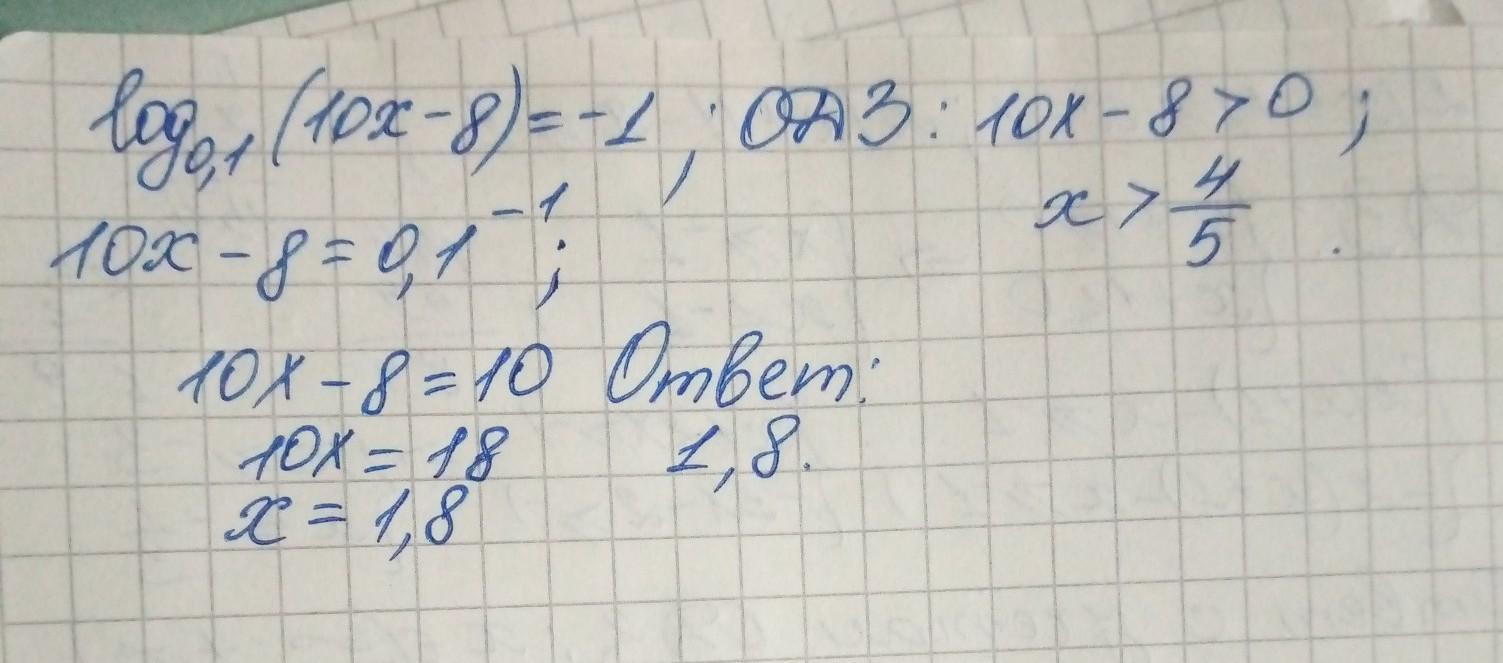 log₀,₁ (10x - 8) = -1 ; ОДЗ : 10x - 8 > 0 ;
x > 4/5 .
10x - 8 = 0,1⁻¹ ;
10x - 8 = 10
10x = 18
x = 1,8
Ответ:
1,8.